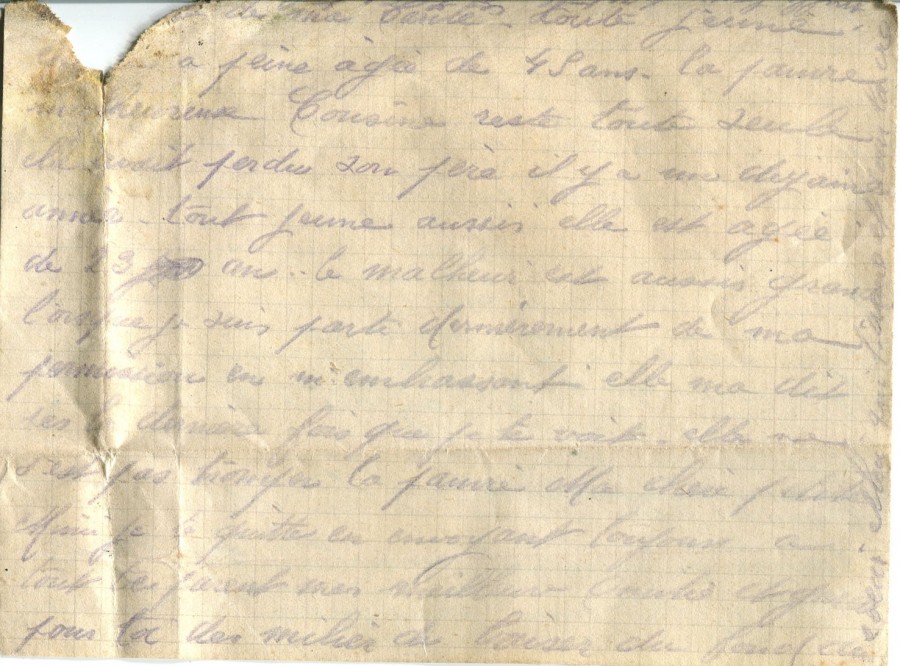 de ma Tante toute jeune
a peine âgée de 48 ans. La pauvre
malheureuse Cousine reste toute seule
elle avait perdu son père il y a une dizaine
année. tout jeune aussi elle est agée
de 23 an.. le malheur est aussis grand
lorsque je suis parti dernièrement de ma
permission en m'embrassant elle ma dit
ses la dernière fois que je te voit. elle ne
s'est pas trompée la pauvre Ma chère petite
je te quittes en envoyant toujours a
tout tes parent mes meilleur et
pour toi des milier de baiser du fond du